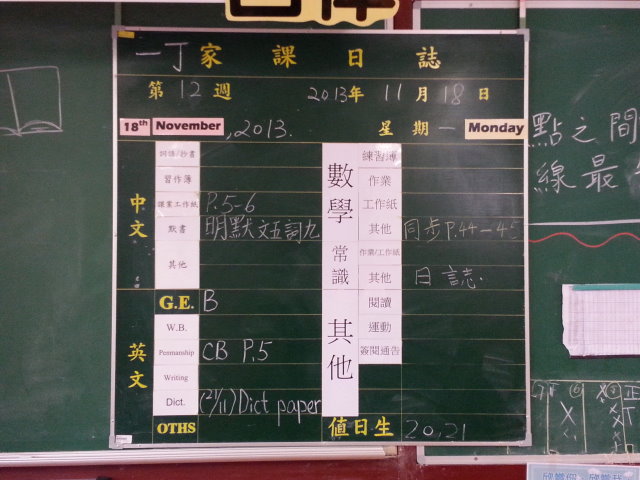 一丁家課日誌
第12週 2013年11月18日
18th November, 2013. 星期一 Monday
中文
詞語/抄書
習作簿
課業工作紙 P.5-6
默書 明默文五詞九
其他
數學
練習簿
作業
工作紙
其他 同步P.44-45
常識
作業/工作紙
其他 日誌.
英文
G.E. B
W.B.
Penmanship CB P.5
Writing
Dict. (21/11) Dict paper
OTHS
其他
閱讀
運動
簽閱通告
值日生 20,21
點之間
線最